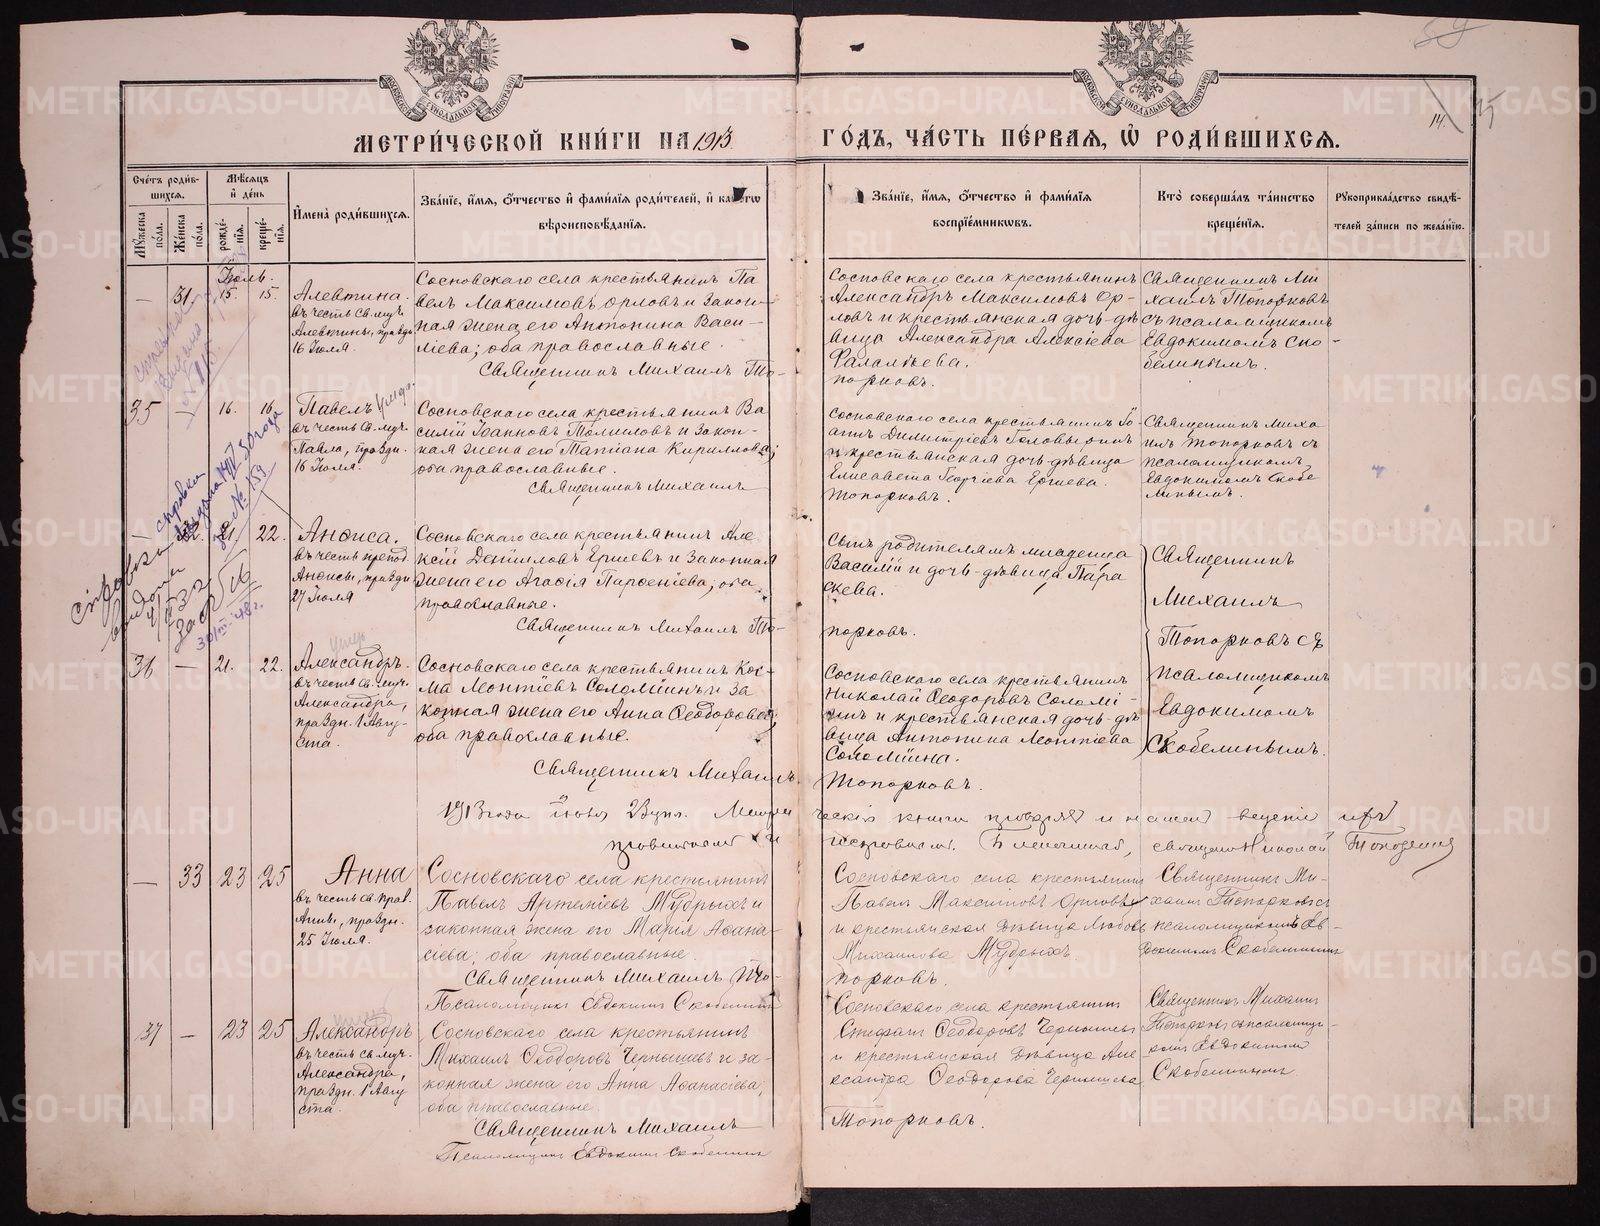 МЕТРИ́ЧЕСКОЙ КНИ́ГИ НА 1913 ГО́ДЪ, ЧА́СТЬ ПЕ́РВАЯ, Ѡ҆ РОДИ́ВШИХСЯ.
14.
Сче́тъ роди́в-
шихся.
Му́жеска по́ла.
Же́нска по́ла.
Мѣ́сяцъ
и҆ де́нь
рожде́-
нїя.
креще́-
нїя.
И҆мена̀ роди́вшихся.
Зва́нїе, и҆́мя, ѻ҆́тчество и҆ фами́лїя роди́телей, и҆ како́гѡ
вѣроисповѣ́данїя.
Зва́нїе, и҆́мя, ѻ҆́тчество и҆ фами́лїя
воспрїе́мникѡвъ.
Кто̀ соверша́лъ та́инство
креще́нїя.
Рꙋкоприкла́дство свидѣ́-
телей за́писи по жела́нїю.
Іюль.
— 31. 15. 15.
Алевтина.
въ честь св. муч.
Алевтины, праздн.
16 Іюля.
Сосновскаго села крестьянинъ Па
велъ Максимовъ Орловъ и закон-
ная жена его Антонина Васи-
ліева; оба православные.
Священникъ Михаилъ То-
Сосновскаго села крестьянинъ
Александръ Максимовъ Ор-
ловъ и крестьянская дочь-дѣ
вица Александра Алексіева
Фалалѣева.
порковъ.
Священникъ Ми
хаилъ Топорковъ
съ псаломщикомъ
Евдокимомъ Ско-
белинымъ.
35 — 16. 16.
Павелъ
въ честь св. муч.
Павла, праздн.
16 Іюля.
Сосновскаго села крестьянинъ Ва
силій Іоанновъ Томиловъ и закон-
ная жена его Татіана Кириллова;
оба православные.
Священникъ Михаилъ
Сосновскаго села крестьянинъ Іо
аннъ Димитріевъ
и крестьянская дочь-дѣвица
Елисавета Георгіева Ершева.
Топорковъ.
Священникъ Миха
илъ Топорковъ съ
псаломщикомъ
Евдокимомъ Скобе
линымъ.
— 32. 21. 22.
Анѳиса.
въ честь препод.
Анѳисы, праздн.
27 Іюля
Сосновскаго села крестьянинъ Але
ксій Даніиловъ Ершевъ и законная
жена его Агаѳія Парѳеніева; оба
православные.
Священникъ Михаилъ То-
Сынъ родителямъ младенца
Василій и дочь-дѣвица Пара
скева.
порковъ.
Священникъ
Михаилъ
Топорковъ съ
псаломщикомъ
Евдокимомъ
Скобелинымъ.
36 — 21. 22.
Александръ.
въ честь св. муч.
Александра,
праздн. 1 Авгу-
ста.
Сосновскаго села крестьянинъ Кос-
ма Леонтіевъ Соломіинъ и за
конная жена его Анна Ѳеодорова;
оба православные.
Священникъ Михаилъ
Сосновскаго села крестьянинъ
Николай Ѳеодоровъ Соломі-
инъ и крестьянская дочь-дѣ
вица Антонина Леонтіева
Соломіина.
Топорковъ.
1913 года іюля 23 дня
книги
— 33 23 25
Анна
въ честь св. прав.
Анны, праздн.
25 Іюля.
Сосновскаго села крестьянинъ
Павелъ Артеміевъ Мудрыхъ и
законная жена его Марія Аѳана-
сіева, оба православные.
Священникъ Михаилъ То-
Псаломщикъ Евдокимъ Скобелинъ
Сосновскаго села крестьянинъ
Павелъ Максимовъ Орловъ
и крестьянская дѣвица Любовь
Михаилова Мудрыхъ.
порковъ.
Священникъ Ми-
хаилъ Топорковъ съ
псаломщикомъ Ев-
докимомъ Скобелинымъ
37 — 23 25
Александръ
въ честь св. муч.
Александра,
праздн. 1 Авгу
ста.
Сосновскаго села крестьянинъ
Михаилъ Ѳеодоровъ Чернышевъ и за-
конная жена его Анна Аѳанасіева,
оба православные.
Священникъ Михаилъ
Псаломщикъ Евдокимъ Скобелинъ
Сосновскаго села крестьянинъ
Стефанъ Ѳеодоровъ Чернышевъ
и крестьянская дѣвица Але
ксандра Ѳеодорова Чернышева
Топорковъ.
Священникъ Михаилъ
Топорковъ съ псаломщи-
комъ Евдокимомъ
Скобелинымъ
METRIKI.GASO-URAL.RU